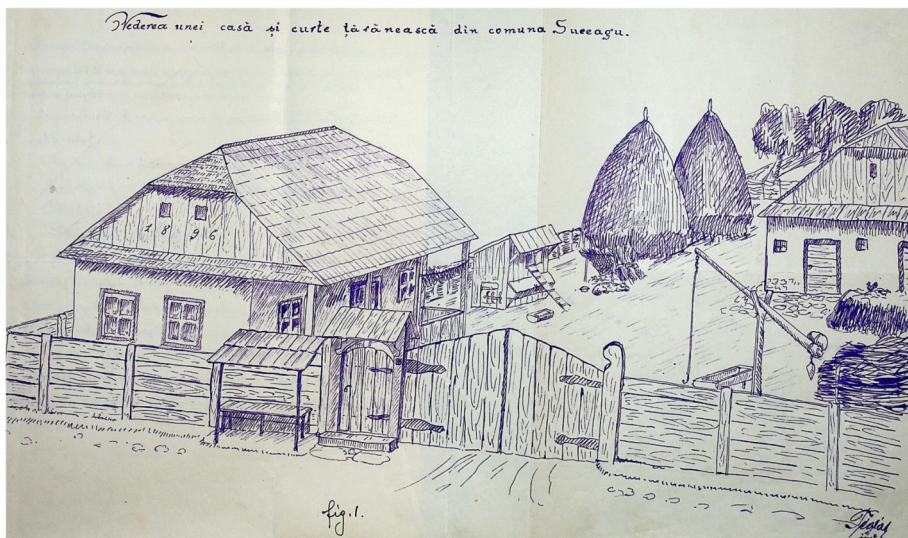 Vederea unei casă și curte țărănească din comuna Suceagu.
1896
fig.1.